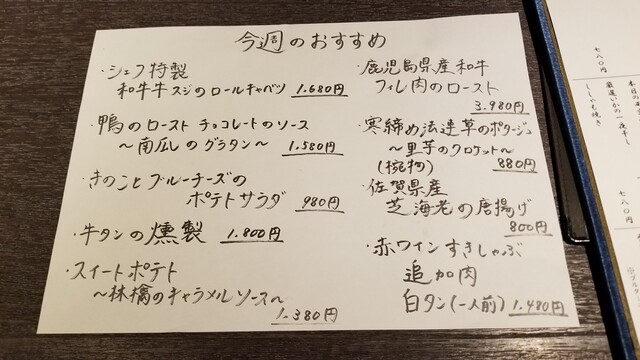 今週のおすすめ
・シェフ特製
和牛牛スジのロールキャベツ 1.680円
・鴨のロースト チョコレートのソース
～南瓜のグラタン～ 1.580円
・きのことブルーチーズの
ポテトサラダ 980円
・牛タンの燻製 1.800円
・スイートポテト
～林檎のキャラメルソース～
1.380円
・鹿児島県産和牛
フィレ肉のロースト
3.980円
・寒締め法連草のポタージュ
～里芋のクロケット～
(椀物) 880円
・佐賀県産
芝海老の唐揚げ
800円
・赤ワインすきしゃぶ
追加肉
白タン(一人前) 1.480円
七八〇円
厳選いかの一夜干し
ししゃも焼き
七八〇円